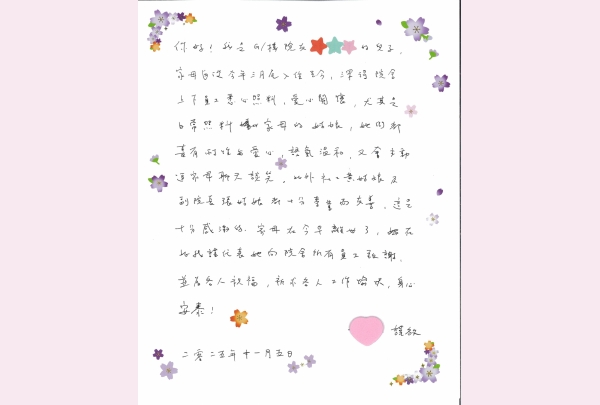 你好！我是G/樓院友的兒子。
家母自從今年三月尾入住至今，深得院舍
上下員工悉心照料，愛心關懷，尤其是
日常照料家母的姑娘，她們都
富有耐性與愛心，語氣溫和，又會主動
逗家母聊天談笑。此外，社工黃姑娘及
副院長張姑娘都十分專業而友善，這是
十分感激的。家母在今早離世了，我在
此我謹代表她向院舍所有員工致謝，
並為各人祝福，祈求各人工作愉快，身心
安泰！
謹啟
二零二五年十一月五日